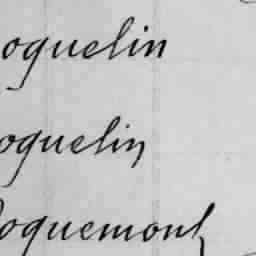 oquelin
oquelin
oquemont